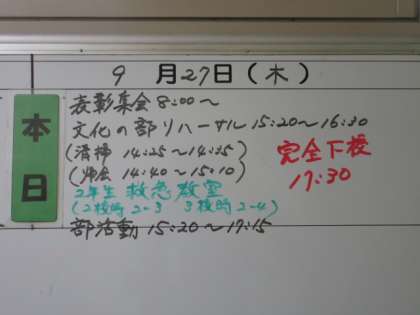 9 月27日(木)
本日
表彰集会 8:00〜
文化の部リハーサル 15:20〜16:30
(清掃 14:25〜14:35)
(終会 14:40〜15:10)
完全下校
17:30
2年生 救急教室
(2校時 2-3 3校時 2-4)
部活動 15:20〜17:15